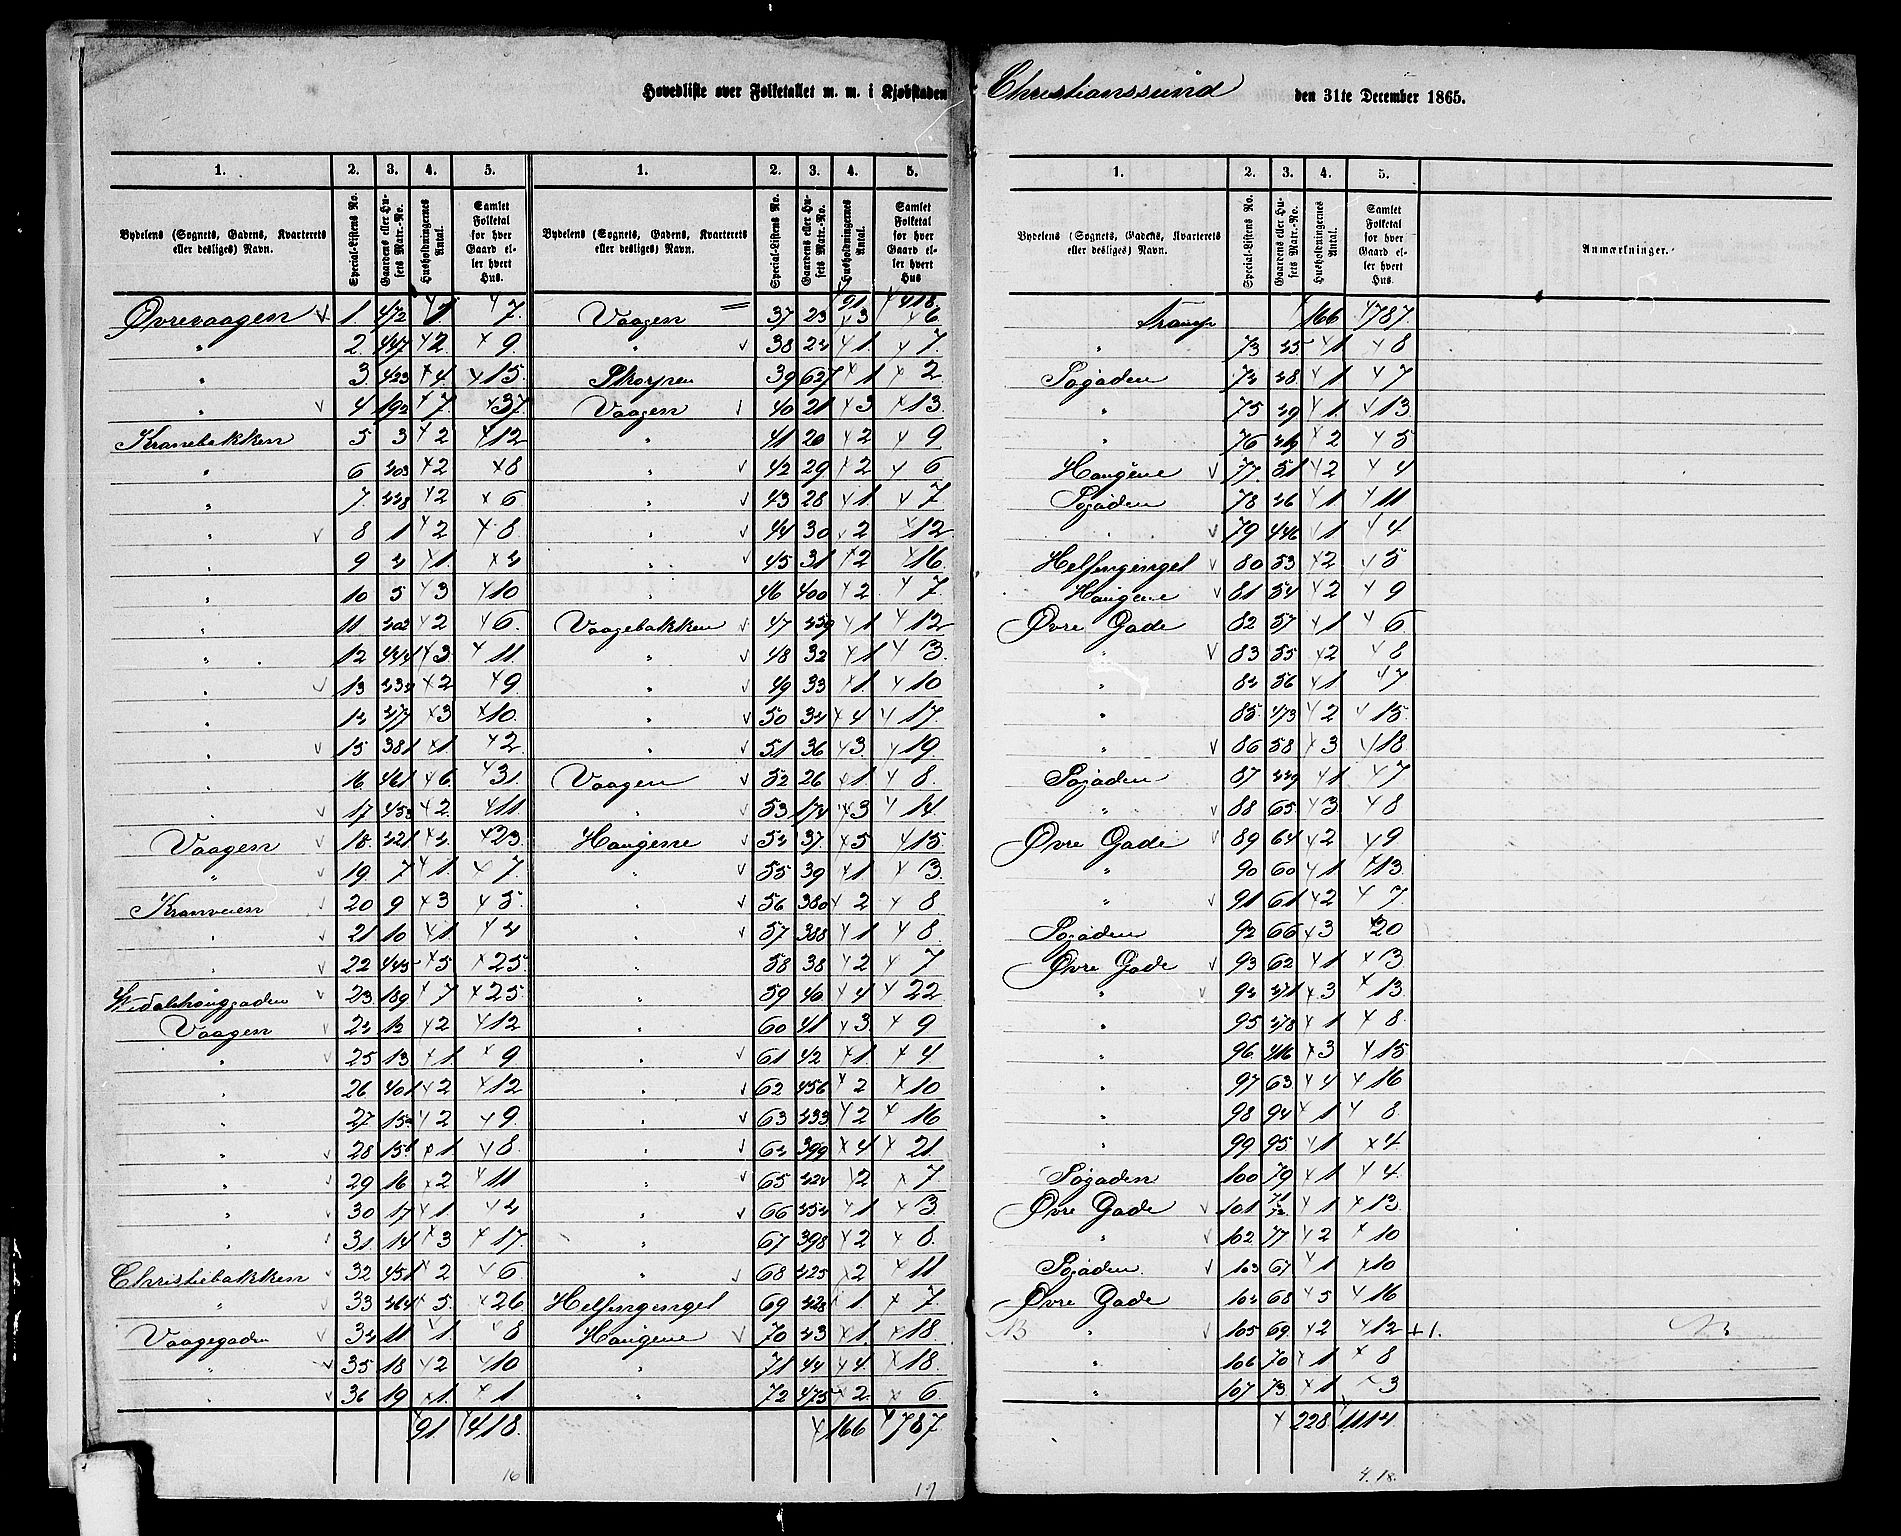 Hovedliste over Folketallet m. m. i Kjøbstaden Christianssund den 31te December 1865.
1. 2. 3. 4. 5. 1. 2. 3. 4. 5.
Bydelens (Sognets, Gadens, Kvarterets eller desliges) Navn. Special-Listens No. Gaardens eller Husets Matr.-No. Husholdningernes Antal. Samlet Folketal for hver Gaard eller hvert Hus. Bydelens (Sognets, Gadens, Kvarterets eller desliges) Navn. Special-Listens No. Gaardens eller Husets Matr.-No. Husholdningernes Antal. Samlet Folketal for hver Gaard eller hvert Hus
91. 418.
Øvrevaagen 1. 472 1 7. Vaagen 37 23 3 6.
" 2. 447 2. 9. " 38 24 1. 7
" 3. 423 4 15. Skorpen 39 627 1 2
" 4 192 7. 37. Vaagen 40 21 3 13.
Kranebakken 5 3 2 12 " 41 20 2 9
" 6 203 2 8 " 42 29 2 6
" 7. 228 2 6 " 43 28 1 7
" 8 1 2 8. " 44 30 2 12.
" 9 4 1. 4 " 45 31 2 16.
" 10 5 3 10 " 46 400 2 7.
" 11 202 2 6. Vaagebakken 47 259 1 12
" 12 444 3. 11. " 48 32 1 3.
" 13 232 2 9 " 49 33 1. 10
" 14 277 3 10. " 50 34 4 17.
" 15 381 1. 2. " 51 36 3. 19
" 16 461 6. 31. Vaagen 52 26 1 8.
" 17 453 2. 11. " 53 174 3 14.
Vaagen 18. 221 4. 23. Haugene 54 37. 5 15
" 19. 7 1. 7. " 55 39 1 3.
Kranveien 20 9 3 5. " 56 380 2 8
" 21 10 1. 4 " 57 388 1 8.
" 22 443 5 25. " 58 38 2 7
23 189 7 25. " 59 40 4 22
Vaagen 24 12 2 12 " 60 41 3. 9
" 25 13 1. 9 " 61 42 1. 4
" 26 401 2 12 " 62 456 2 10
" 27 15a 2 9. " 63 233 2 16
" 28 15b 1 8. " 64 399 4 21
" 29 16 2 11 " 65 224 2 7
" 30 17 1 4 " 66 252 1 3
" 31 14 3 17. " 67 398 2 8.
Christiebakken 32 451 2 6 " 68 225 2 11
" 33 264 5. 26 Helsingenget 69 228 1. 7
Vaagegaden 34 11 1. 8 Haugene 70 43 1. 18.
" 35 18 2 10 " 71 44 4. 18.
" 36 19 1. 1 " 72 475 2. 6.
91. 418. 166 787.
16 17
1. 2. 3. 4. 5.
Bydelens (Sognets, Gadens, Kvarterets eller desliges) Navn. Special-Listens No. Gaardens eller Husets Matr.-No. Husholdningernes Antal. Samlet Folketal for hver Gaard eller hvert Hus. Anmærkninger.
Transp 166 787.
" 73 25 1 8
Søgaden 74 48 1 7
" 75 49 1 13.
" 76 219 2 5
Haugene 77. 51 2 4
Søgaden 78 46 1 11
" 79 446 1 4
Helsingenget 80 53 2 5
Haugene 81 54 2 9
Øvre Gade 82 57 1 6
" 83 55 2 8
" 84 56 1 7
" 85. 473 2 15.
" 86 58 3 18.
Søgaden 87 229 1 7
" 88 65 3 8
Øvre Gade 89 64 2 9
" 90 60 1 13.
" 91 61 2 7.
Søgaden 92 66 3 20
Øvre Gade 93 62 1 3
" 94 271 3 13.
" 95 278 1 8.
" 96. 416 3 15
" 97 63. 4 16
" 98 94 1 8
" 99 95 1 4
Søgaden 100 79 1 4.
Øvre Gade 101 71/72. 1 13.
" 102 77 2 10
Søgaden. 103 67 1 10
Øvre Gade 104 68 5 16
" 105 69 2 12 +1.
" 106 70 1 8
" 107 73 1 3
228. 1114.
4. 18.